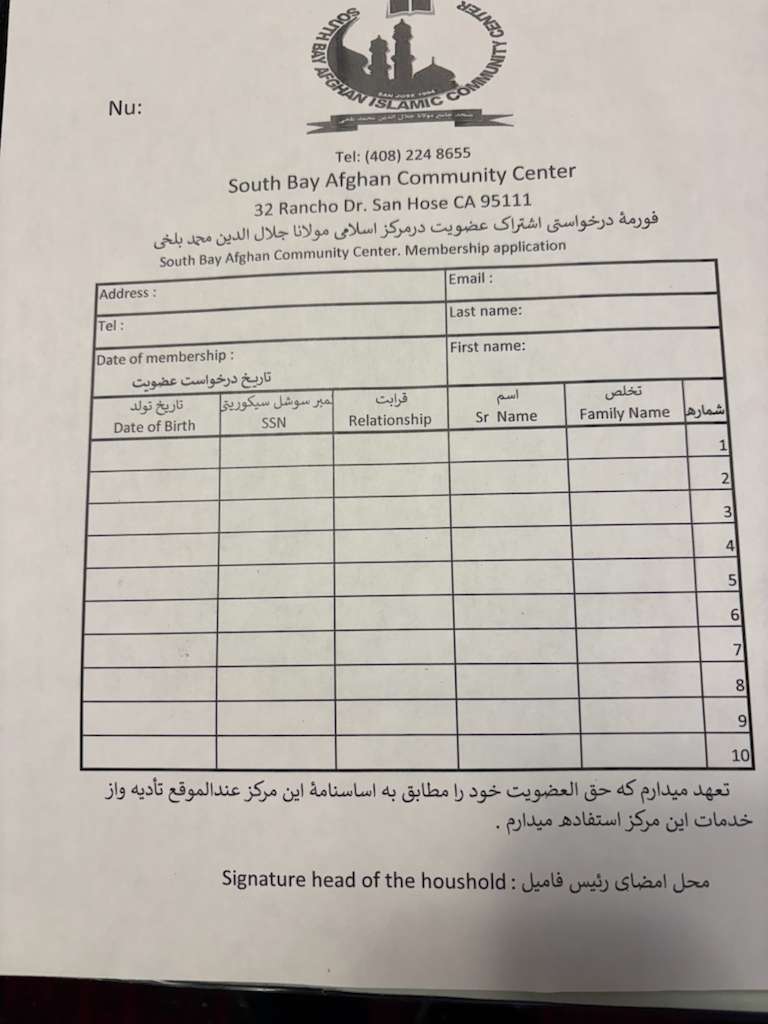 SOUTH BAY AFGHAN ISLAMIC COMMUNITY CENTER
SAN JOSE 1994
مسجد جامع مولانا جلال الدین محمد بلخی
Nu:
Tel: (408) 224 8655
South Bay Afghan Community Center
32 Rancho Dr. San Hose CA 95111
فورمهٔ درخواستی اشتراک عضویت درمرکز اسلامی مولانا جلال الدین محمد بلخی
South Bay Afghan Community Center. Membership application
Address :
Email :
Tel :
Last name:
Date of membership :
تاریخ درخواست عضویت
First name:
تاریخ تولد
Date of Birth
نمبر سوشل سیکوریتی
SSN
قرابت
Relationship
اسم
Sr Name
تخلص
Family Name
شماره
1
2
3
4
5
6
7
8
9
10
تعهد میدارم که حق العضویت خود را مطابق به اساسنامهٔ این مرکز عندالموقع تأدیه واز
خدمات این مرکز استفاده میدارم .
Signature head of the houshold : محل امضای رئیس فامیل